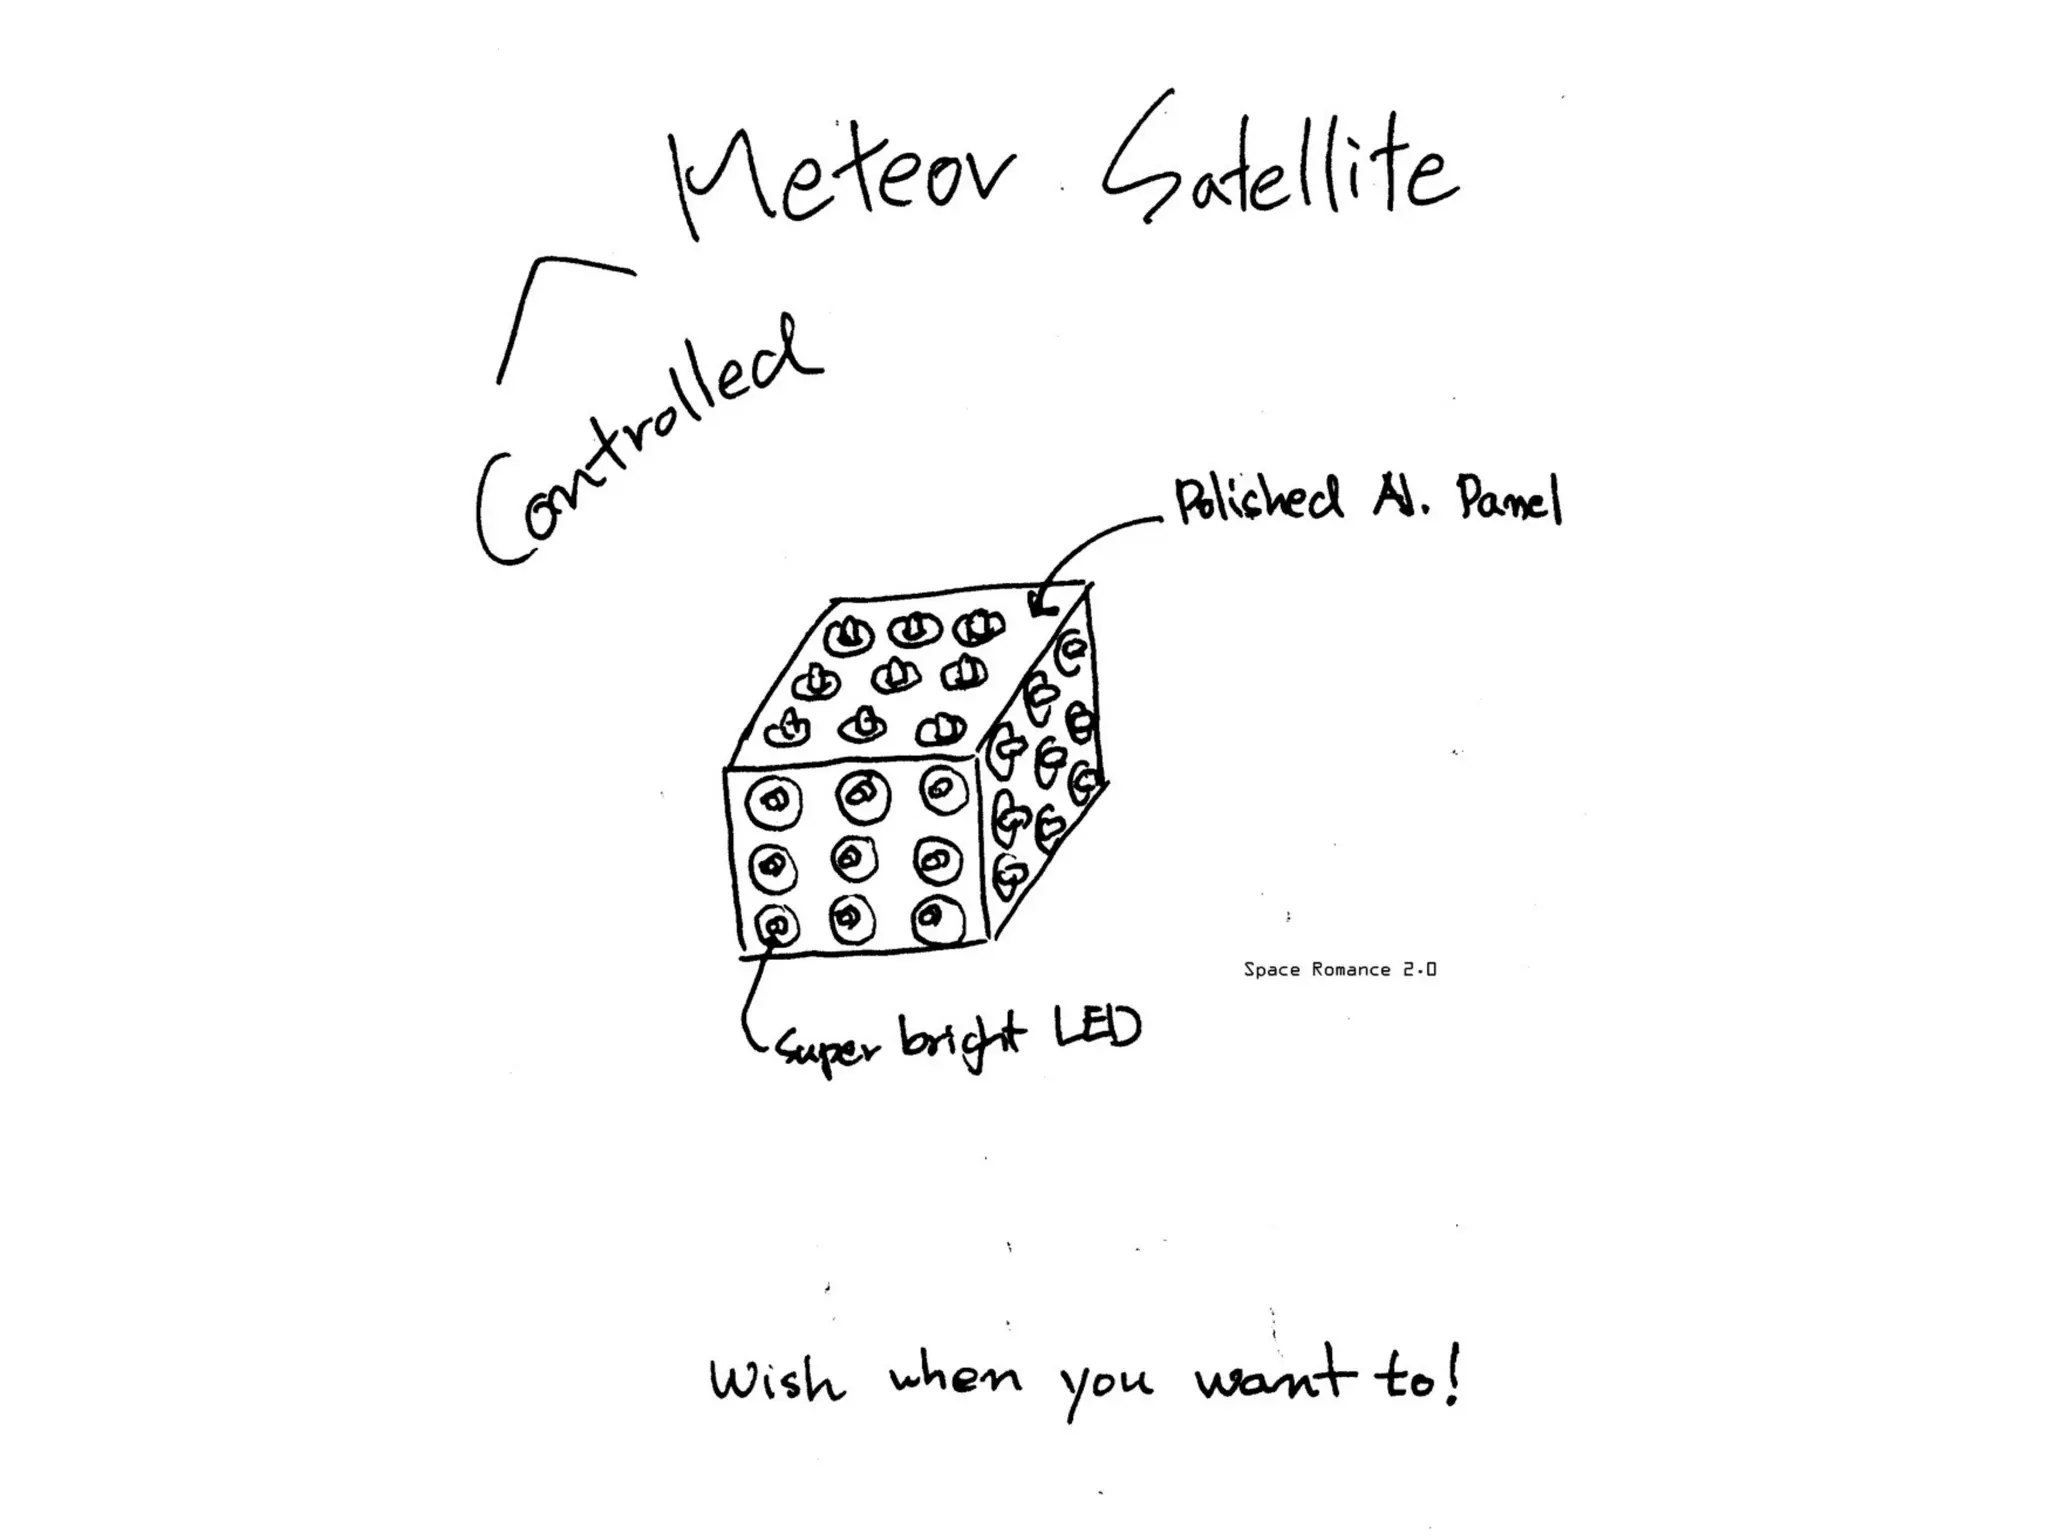 Meteor Satellite
Controlled
Polished Al. Panel
Space Romance 2.0
Super bright LED
Wish when you want to!